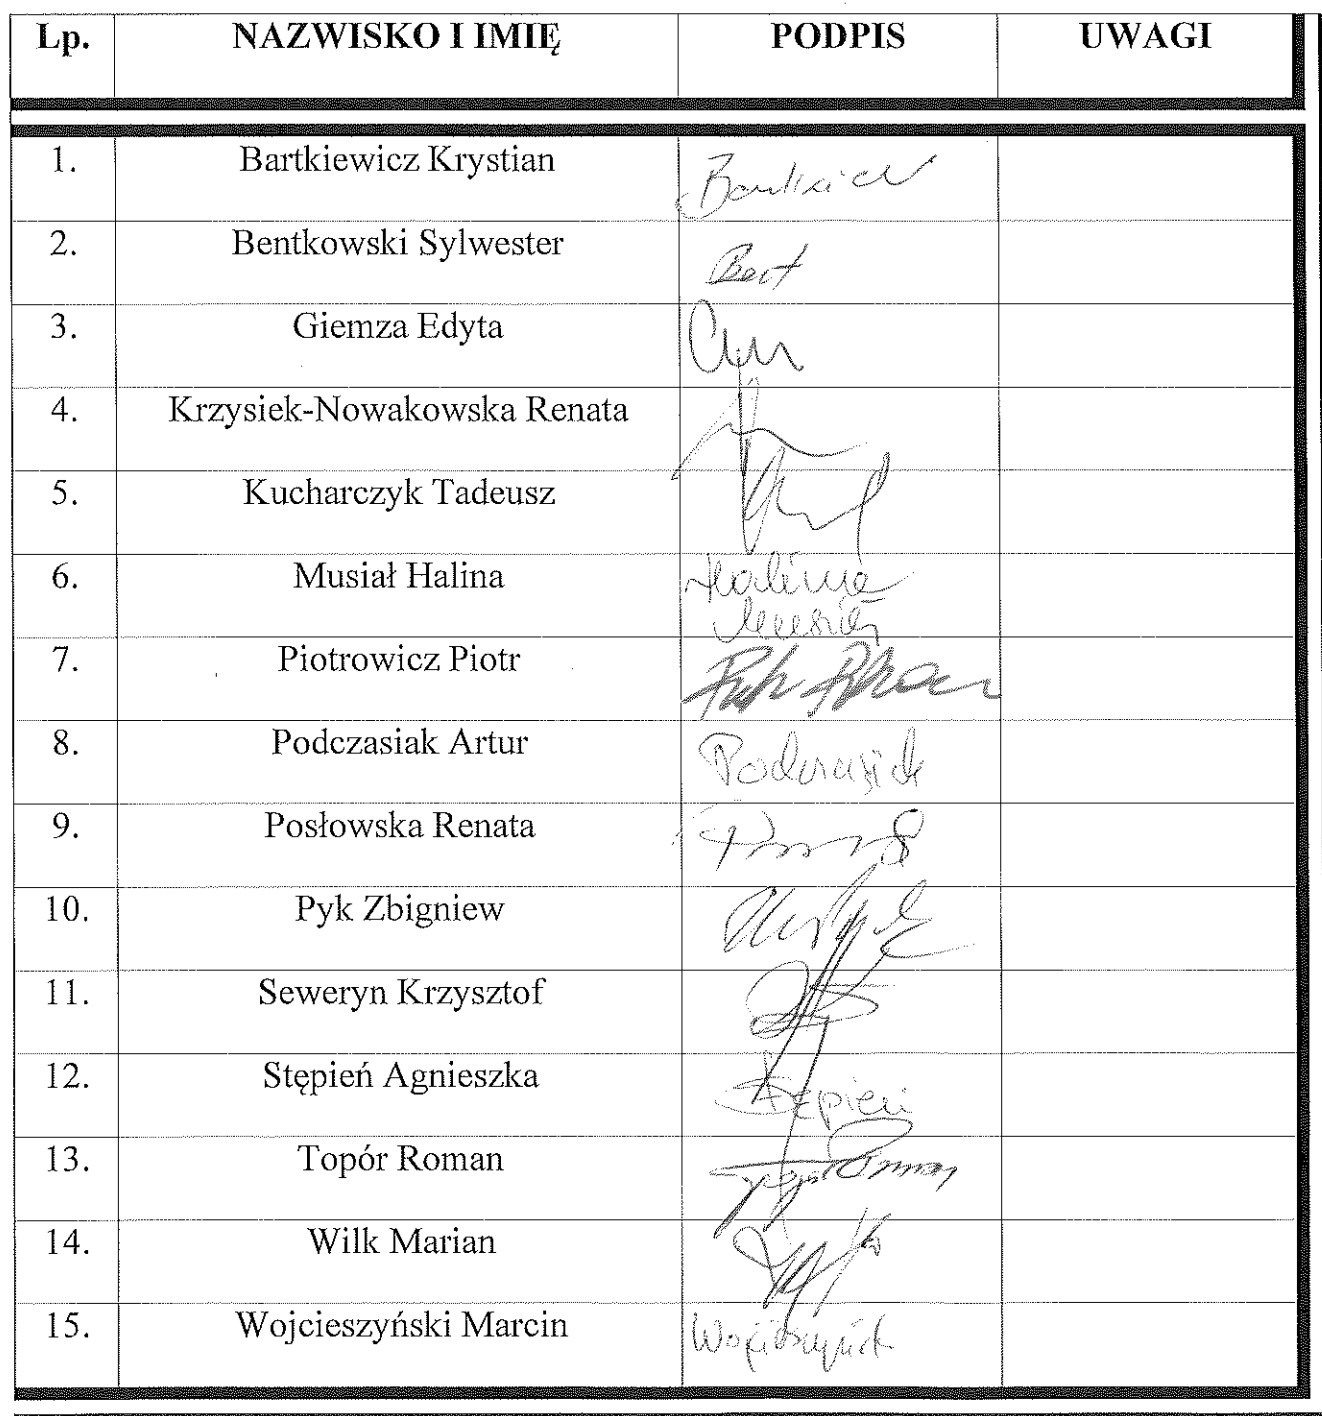 Lp. NAZWISKO I IMIĘ PODPIS UWAGI
1. Bartkiewicz Krystian
2. Bentkowski Sylwester Bent
3. Giemza Edyta
4. Krzysiek-Nowakowska Renata
5. Kucharczyk Tadeusz
6. Musiał Halina Halina
Musiał
7. Piotrowicz Piotr
8. Podczasiak Artur Podczasiak
9. Posłowska Renata
10. Pyk Zbigniew
11. Seweryn Krzysztof
12. Stępień Agnieszka Stępień
13. Topór Roman Topór Roman
14. Wilk Marian
15. Wojcieszyński Marcin